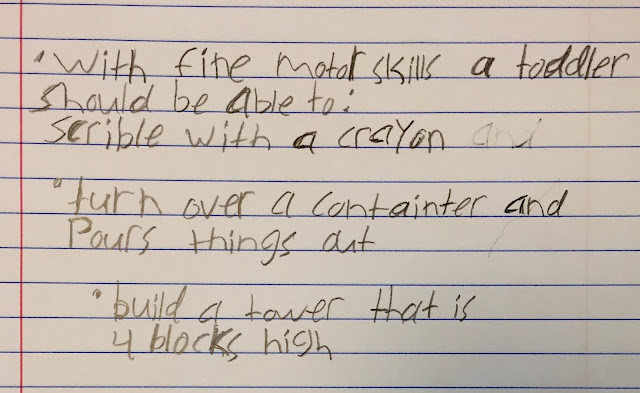 • With fine motor skills a toddler
should be able to:
scrible with a crayon and
• turn over a containter and
Pours things out
• build a tower that is
4 blocks high